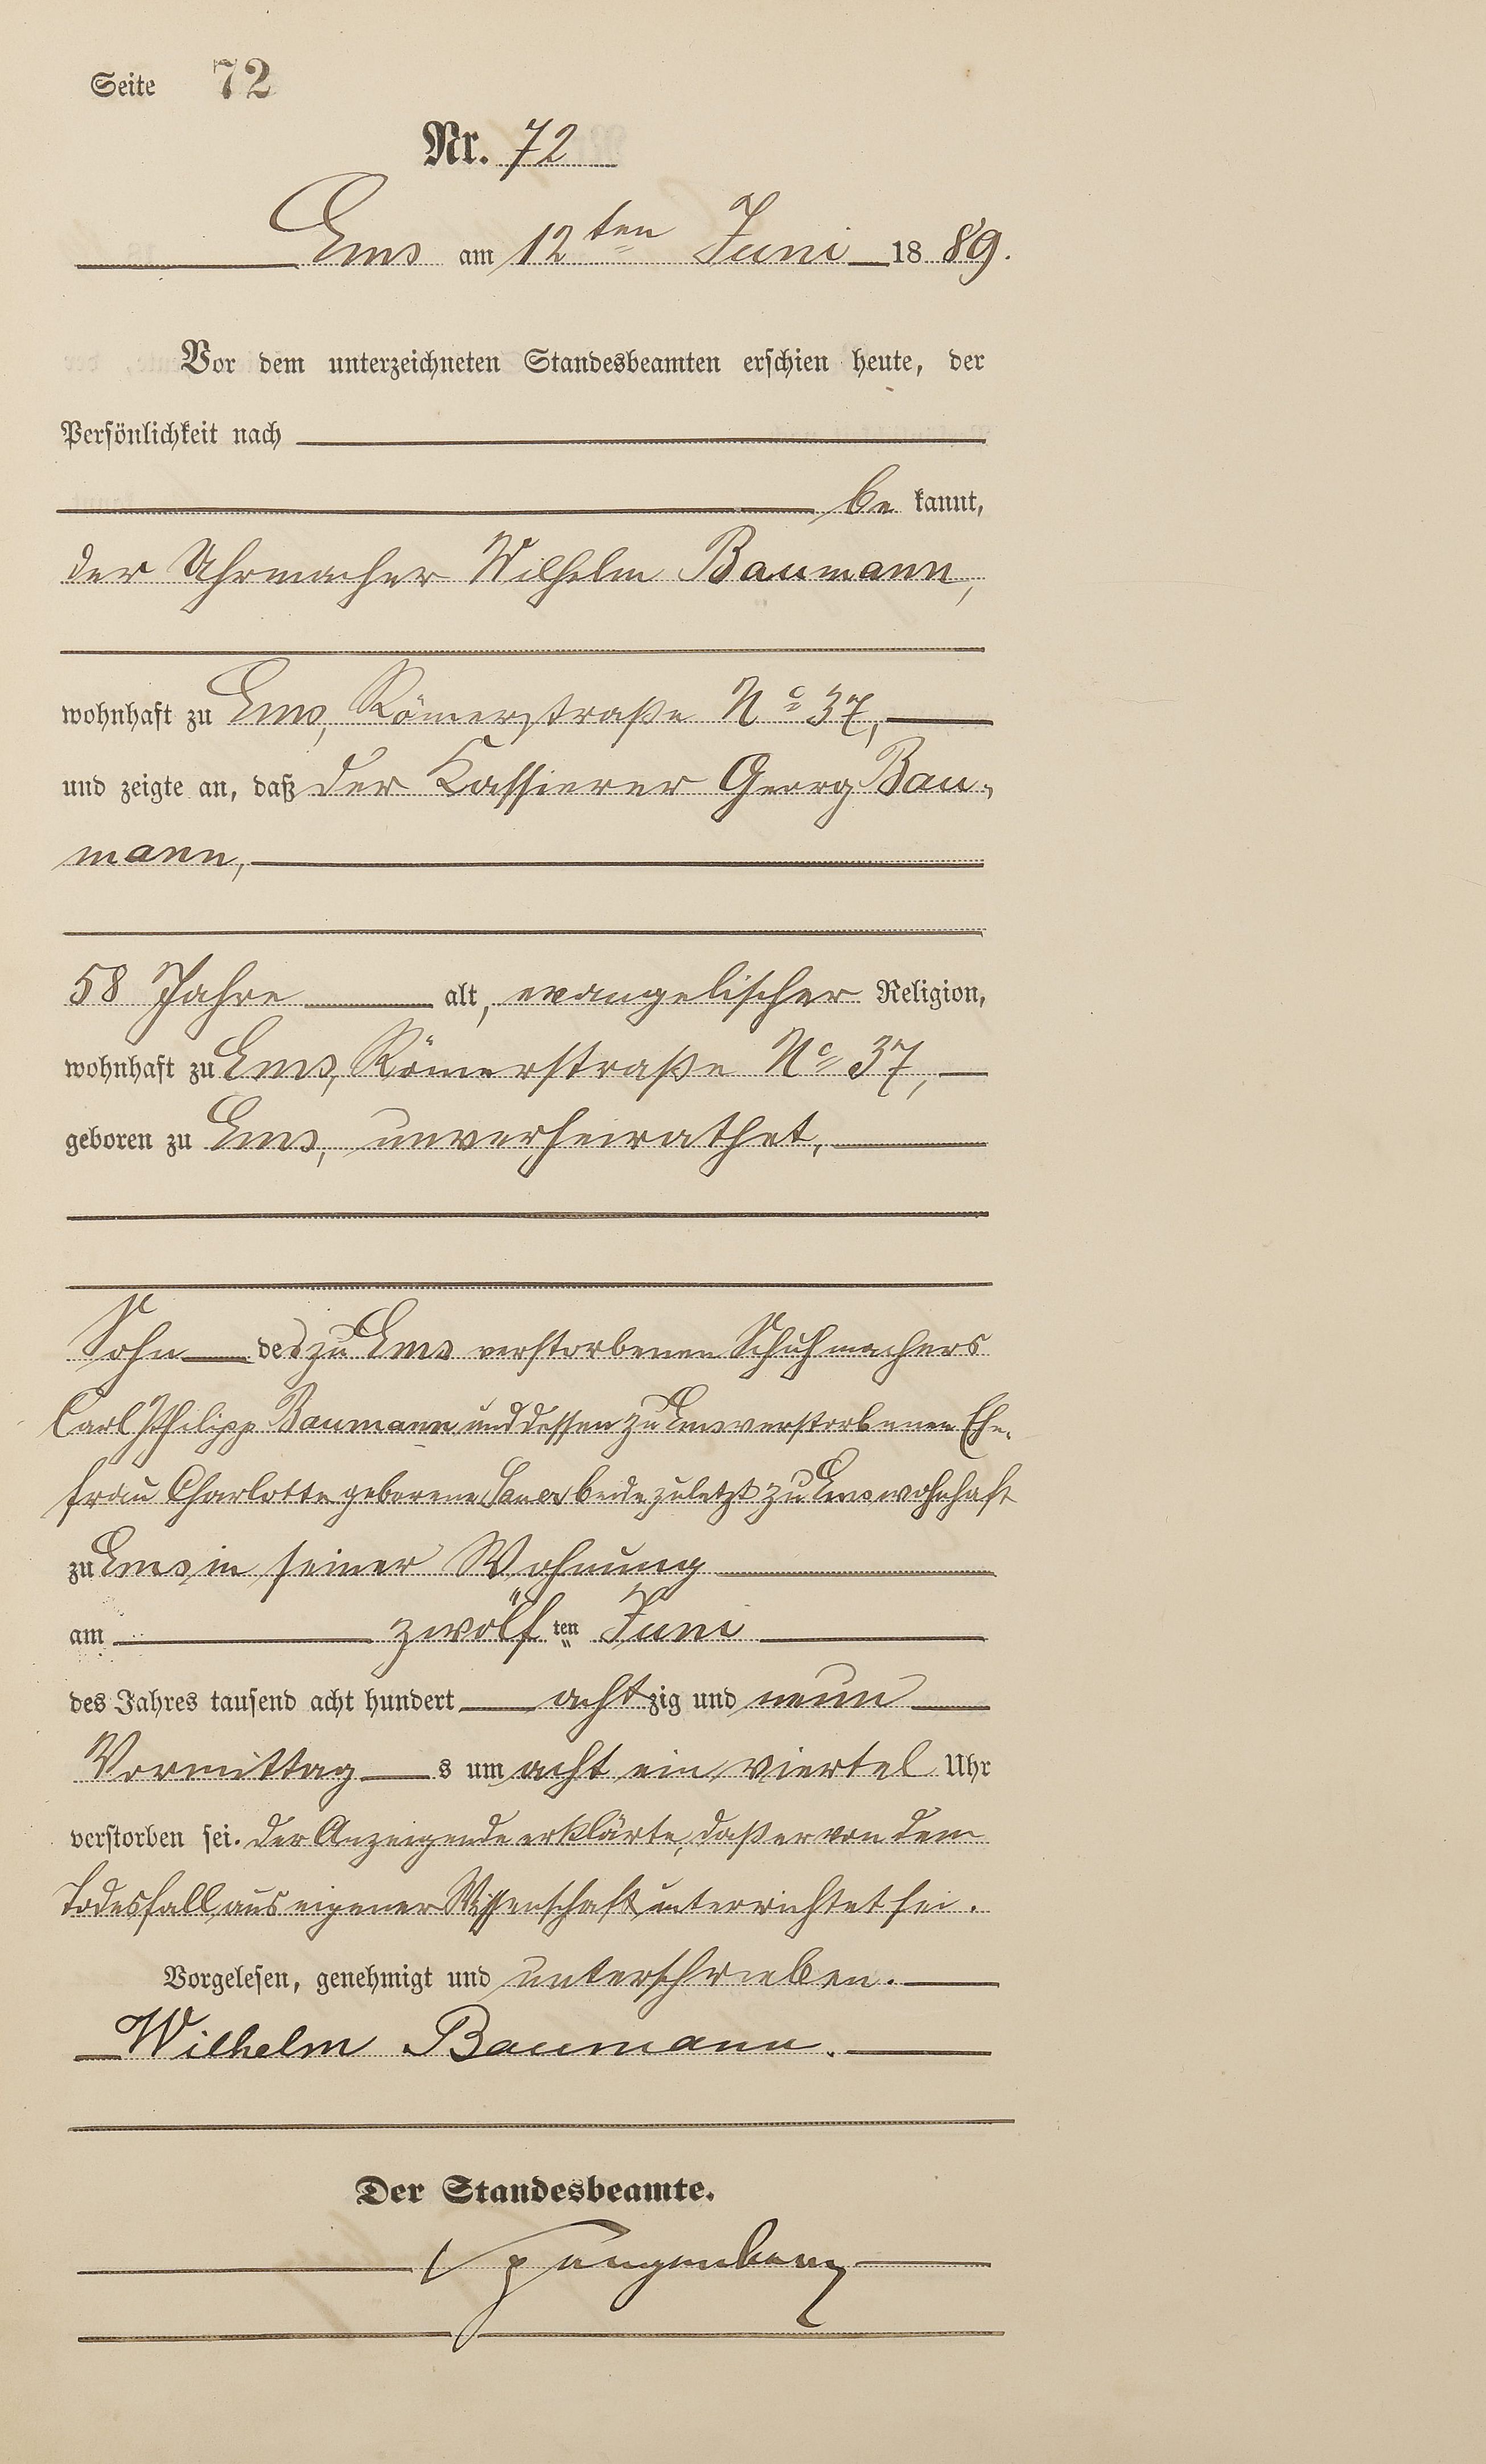 Seite 72
Nr. 72
Ems am 12ten Juni 1889.
Vor dem unterzeichneten Standesbeamten erschien heute, der
Persönlichkeit nach
be kannt,
der Uhrmacher Wilhelm Baumann,
wohnhaft zu Ems, Römerstraße No 37,
und zeigte an, daß der Kassierer Georg Bau-
mann,
58 Jahre alt, evangelischer Religion,
wohnhaft zu Ems, Römerstraße No 37,
geboren zu Ems, unverheirathet,
Sohn des zu Ems verstorbenen Schuhmachers
Carl Philipp Baumann und dessen zu Ems verstorbenen Ehe-
frau Charlotte geborene beide zuletzt zu Ems wohnhaft
zu Ems in seiner Wohnung
am zwölf ten Juni
des Jahres tausend acht hundert achtzig und neun
Vormittag s um acht ein viertel Uhr
verstorben sei. Der Anzeigende erklärte, daß er von dem
Todesfall aus eigener Wissenschaft unterrichtet sei.
Vorgelesen, genehmigt und unterschrieben.
Wilhelm Baumann.
Der Standesbeamte.
Spangenberg